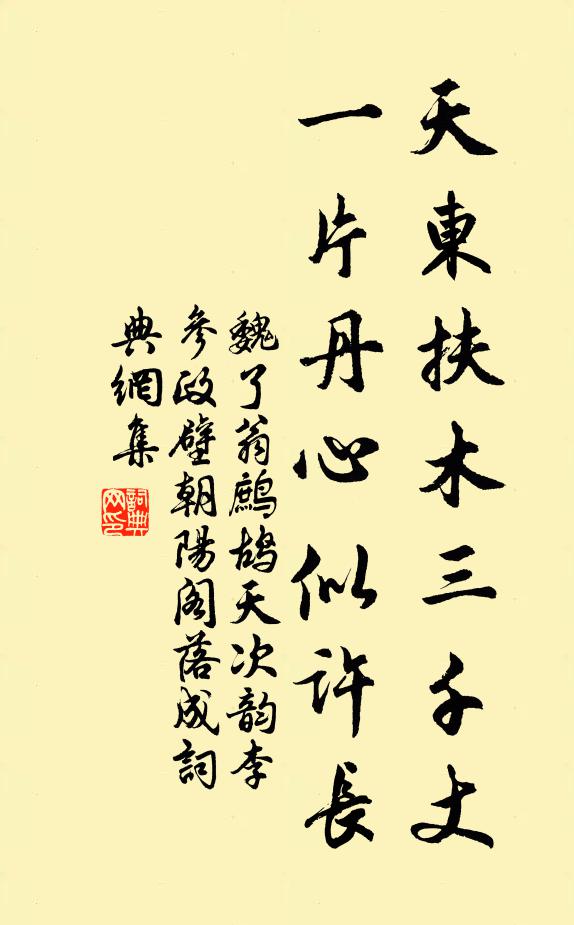 天東扶木三千丈
一片丹心似許長
魏了翁鷓鴣天次韵李
參政壁朝陽阁落成詞
典網集
詞典
网印